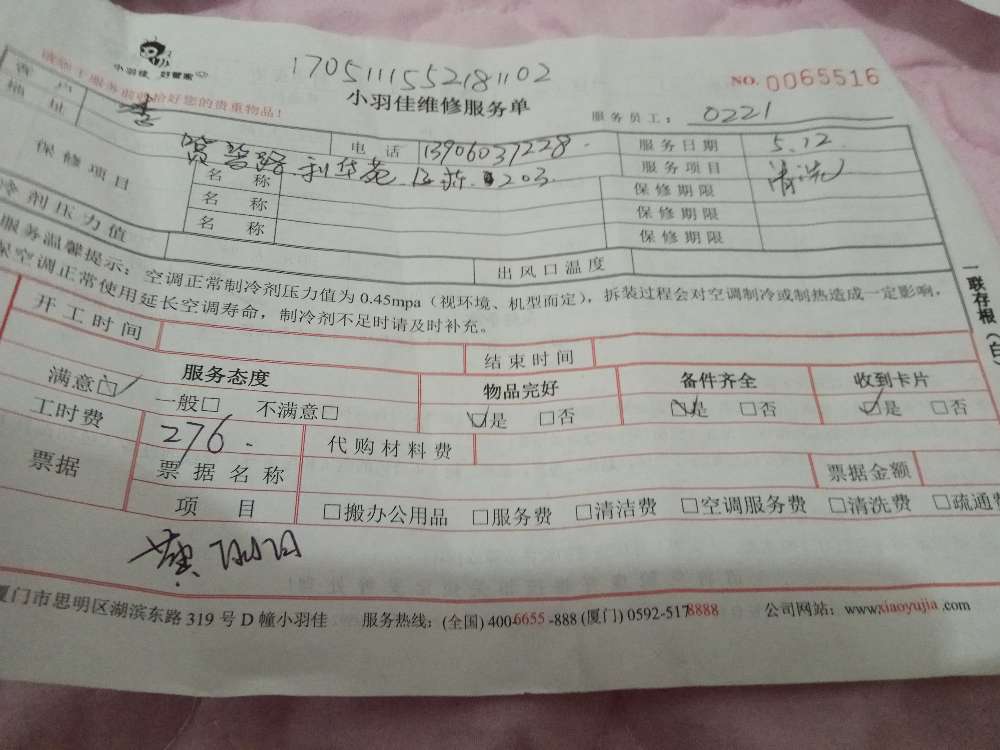 小羽佳 好管家
17051115521811102
NO. 0065516
请勿于服务前收拾好您的贵重物品！
小羽佳维修服务单
服务员工： 0221
客户 李 电话 13906037228. 服务日期 5.12
地址 利华苑 203. 服务项目 清洗
保修项目 名称 保修期限
名称 保修期限
名称 保修期限
冷剂压力值 出风口温度
服务温馨提示：空调正常制冷剂压力值为 0.45mpa（视环境、机型而定），拆装过程会对空调制冷或制热造成一定影响，
保空调正常使用延长空调寿命，制冷剂不足时请及时补充。
一联存根（白
开工时间 结束时间
服务态度 物品完好 备件齐全 收到卡片
满意□ 一般□ 不满意□ □是 □否 □是 □否 □是 □否
工时费 276. 代购材料费
票据 票据名称 票据金额
项目 □搬办公用品 □服务费 □清洁费 □空调服务费 □清洗费 □疏通费
黄
厦门市思明区湖滨东路 319 号 D 幢小羽佳 服务热线：(全国) 400-6655-888 (厦门) 0592-5178888 公司网站：www.xiaoyujia.com